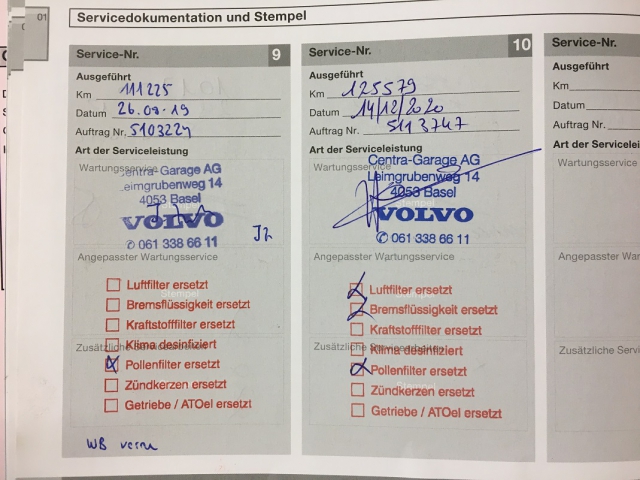 01
Servicedokumentation und Stempel
Service-Nr. 9
Ausgeführt
Km 111225
Datum 26.09.19
Auftrag Nr. 5103224
Art der Serviceleistung
Wartungsservice
Centra-Garage AG
Leimgrubenweg 14
4053 Basel
VOLVO
✆ 061 338 66 11
Angepasster Wartungsservice
Luftfilter ersetzt
Stempel
Bremsflüssigkeit ersetzt
Kraftstofffilter ersetzt
Klima desinfiziert
Zusätzliche Servicearbeiten
Pollenfilter ersetzt
Zündkerzen ersetzt
Getriebe / ATOel ersetzt
WB
Service-Nr. 10
Ausgeführt
Km 125579
Datum 14/12/2020
Auftrag Nr. 5113747
Art der Serviceleistung
Wartungsservice
Centra-Garage AG
Leimgrubenweg 14
4053 Basel
Stempel
VOLVO
✆ 061 338 66 11
Angepasster Wartungsservice
Luftfilter ersetzt
Stempel
Bremsflüssigkeit ersetzt
Kraftstofffilter ersetzt
Klima desinfiziert
Zusätzliche Servicearbeiten
Pollenfilter ersetzt
Stempel
Zündkerzen ersetzt
Getriebe / ATOel ersetzt
Service-Nr.
Ausgeführt
Km
Datum
Auftrag Nr.
Art der Servicelei
Wartungsservice
Angepasster War
Zusätzliche Servi